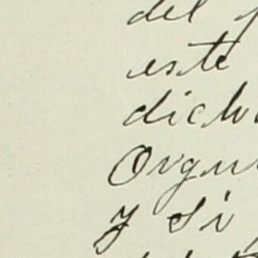 del
este
dich
Orga
y si